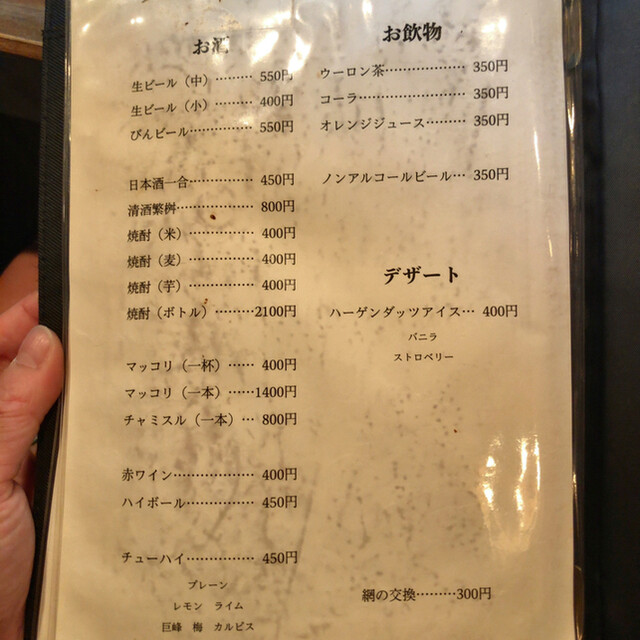 お酒
生ビール（中）……… 550円
生ビール（小）……… 400円
びんビール…………… 550円
日本酒一合…………… 450円
清酒繁桝……………… 800円
焼酎（米）…………… 400円
焼酎（麦）…………… 400円
焼酎（芋）…………… 400円
焼酎（ボトル）………2100円
マッコリ（一杯）…… 400円
マッコリ（一本）……1400円
チャミスル（一本）… 800円
赤ワイン……………… 400円
ハイボール…………… 450円
チューハイ…………… 450円
プレーン
レモン ライム
巨峰 梅 カルピス
お飲物
ウーロン茶……………… 350円
コーラ…………………… 350円
オレンジジュース……… 350円
ノンアルコールビール… 350円
デザート
ハーゲンダッツアイス… 400円
バニラ
ストロベリー
網の交換………300円